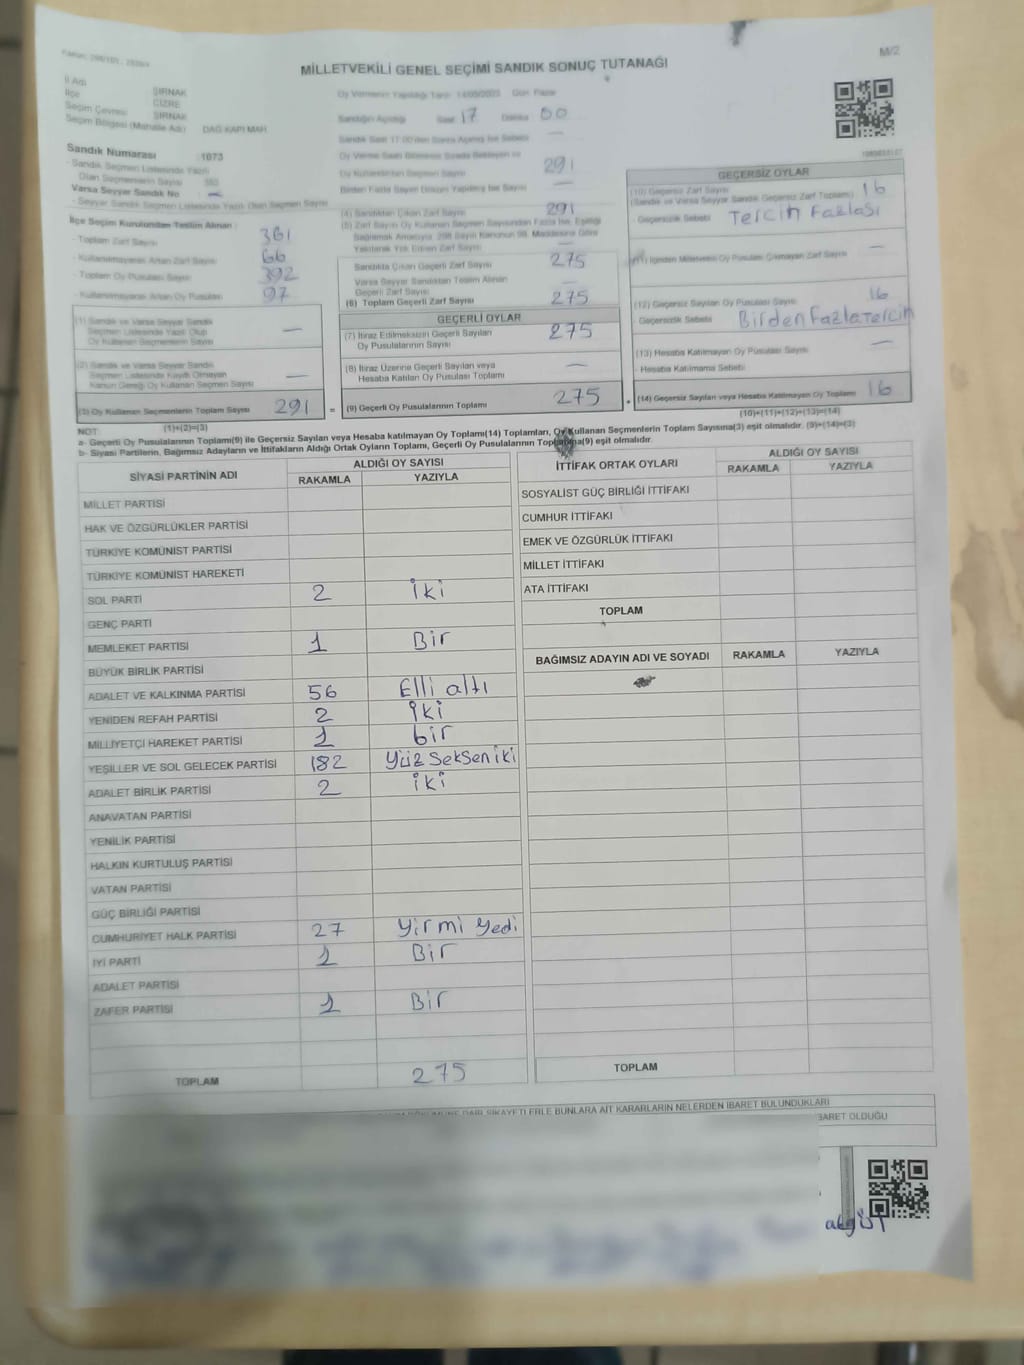 M/2
MİLLETVEKİLİ GENEL SEÇİMİ SANDIK SONUÇ TUTANAĞI
İl Adı ŞIRNAK
İlçe CİZRE
Seçim Çevresi ŞIRNAK
Seçim Bölgesi (Mahalle Adı) DAĞ KAPI MAH
Oy Vermenin Yapıldığı Tarih 14/05/2023 Gün Pazar
Sandığın Açıldığı Saat 17 Dakika 00
Sandık Numarası 1073
- Sandık Seçmen Listesinde Yazılı
Olan Seçmenlerin Sayısı
Varsa Seyyar Sandık No —
- Seyyar Sandık Seçmen Listesinde Yazılı Olan Seçmen Sayısı
İlçe Seçim Kurulundan Teslim Alınan :
- Toplam Zarf Sayısı 361
- Kullanılmayarak Artan Zarf Sayısı 66
- Toplam Oy Pusulası Sayısı 392
- Kullanılmayarak Artan Oy Pusulası 97
(1) Sandık ve Varsa Seyyar Sandık
Seçmen Listesinde Yazılı Olup
Oy Kullanan Seçmenlerin Sayısı —
(2) Sandık ve Varsa Seyyar Sandık
Seçmen Listesinde Kayıtlı Olmayan
Kanun Gereği Oy Kullanan Seçmen Sayısı —
(3) Oy Kullanan Seçmenlerin Toplam Sayısı 291
(1)+(2)=(3)
Oy Kullandırılan Seçmen Sayısı 291
Birden Fazla Sayım Döküm Yapılmış İse Sayısı —
(4) Sandıktan Çıkan Zarf Sayısı 291
(5) Zarf Sayısı Oy Kullanan Seçmen Sayısından Fazla İse, Eşitliği
Sağlamak Amacıyla 298 Sayılı Kanunun 98. Maddesine Göre
Yakılarak Yok Edilen Zarf Sayısı —
Sandıkta Çıkan Geçerli Zarf Sayısı 275
Varsa Seyyar Sandıktan Teslim Alınan
Geçerli Zarf Sayısı —
(6) Toplam Geçerli Zarf Sayısı 275
GEÇERLİ OYLAR
(7) İtiraz Edilmeksizin Geçerli Sayılan
Oy Pusulalarının Sayısı 275
(8) İtiraz Üzerine Geçerli Sayılan veya
Hesaba Katılan Oy Pusulası Toplamı —
= (9) Geçerli Oy Pusulalarının Toplamı 275
GEÇERSİZ OYLAR
(10) Geçersiz Zarf Sayısı
(Sandık ve Varsa Seyyar Sandık Geçersiz Zarf Toplamı) 16
- Geçersizlik Sebebi Tercih Fazlası
(11) İçinden Milletvekili Oy Pusulası Çıkmayan Zarf Sayısı —
(12) Geçersiz Sayılan Oy Pusulası Sayısı 16
- Geçersizlik Sebebi Birden Fazla Tercih
(13) Hesaba Katılmayan Oy Pusulası Sayısı —
- Hesaba Katılmama Sebebi
+ (14) Geçersiz Sayılan veya Hesaba Katılmayan Oy Toplamı 16
(10)+(11)+(12)+(13)=(14)
NOT:
a- Geçerli Oy Pusulalarının Toplamı(9) ile Geçersiz Sayılan veya Hesaba katılmayan Oy Toplamı(14) Toplamları, Oy Kullanan Seçmenlerin Toplam Sayısına(3) eşit olmalıdır. (9)+(14)=(3)
b- Siyasi Partilerin, Bağımsız Adayların ve İttifakların Aldığı Ortak Oyların Toplamı, Geçerli Oy Pusulalarının Toplamına(9) eşit olmalıdır.
SİYASİ PARTİNİN ADI ALDIĞI OY SAYISI
RAKAMLA YAZIYLA
MİLLET PARTİSİ
HAK VE ÖZGÜRLÜKLER PARTİSİ
TÜRKİYE KOMÜNİST PARTİSİ
TÜRKİYE KOMÜNİST HAREKETİ
SOL PARTİ 2 İki
GENÇ PARTİ
MEMLEKET PARTİSİ 1 Bir
BÜYÜK BİRLİK PARTİSİ
ADALET VE KALKINMA PARTİSİ 56 Elli altı
YENİDEN REFAH PARTİSİ 2 İki
MİLLİYETÇİ HAREKET PARTİSİ 1 bir
YEŞİLLER VE SOL GELECEK PARTİSİ 182 Yüz Seksen iki
ADALET BİRLİK PARTİSİ 2 iki
ANAVATAN PARTİSİ
YENİLİK PARTİSİ
HALKIN KURTULUŞ PARTİSİ
VATAN PARTİSİ
GÜÇ BİRLİĞİ PARTİSİ
CUMHURİYET HALK PARTİSİ 27 Yirmi Yedi
İYİ PARTİ 1 Bir
ADALET PARTİSİ
ZAFER PARTİSİ 1 Bir
TOPLAM 275
İTTİFAK ORTAK OYLARI ALDIĞI OY SAYISI
RAKAMLA YAZIYLA
SOSYALİST GÜÇ BİRLİĞİ İTTİFAKI
CUMHUR İTTİFAKI
EMEK VE ÖZGÜRLÜK İTTİFAKI
MİLLET İTTİFAKI
ATA İTTİFAKI
TOPLAM
BAĞIMSIZ ADAYIN ADI VE SOYADI RAKAMLA YAZIYLA
TOPLAM
ŞİKAYETLERLE BUNLARA AİT KARARLARIN NELERDEN İBARET BULUNDUKLARI
OLDUĞU